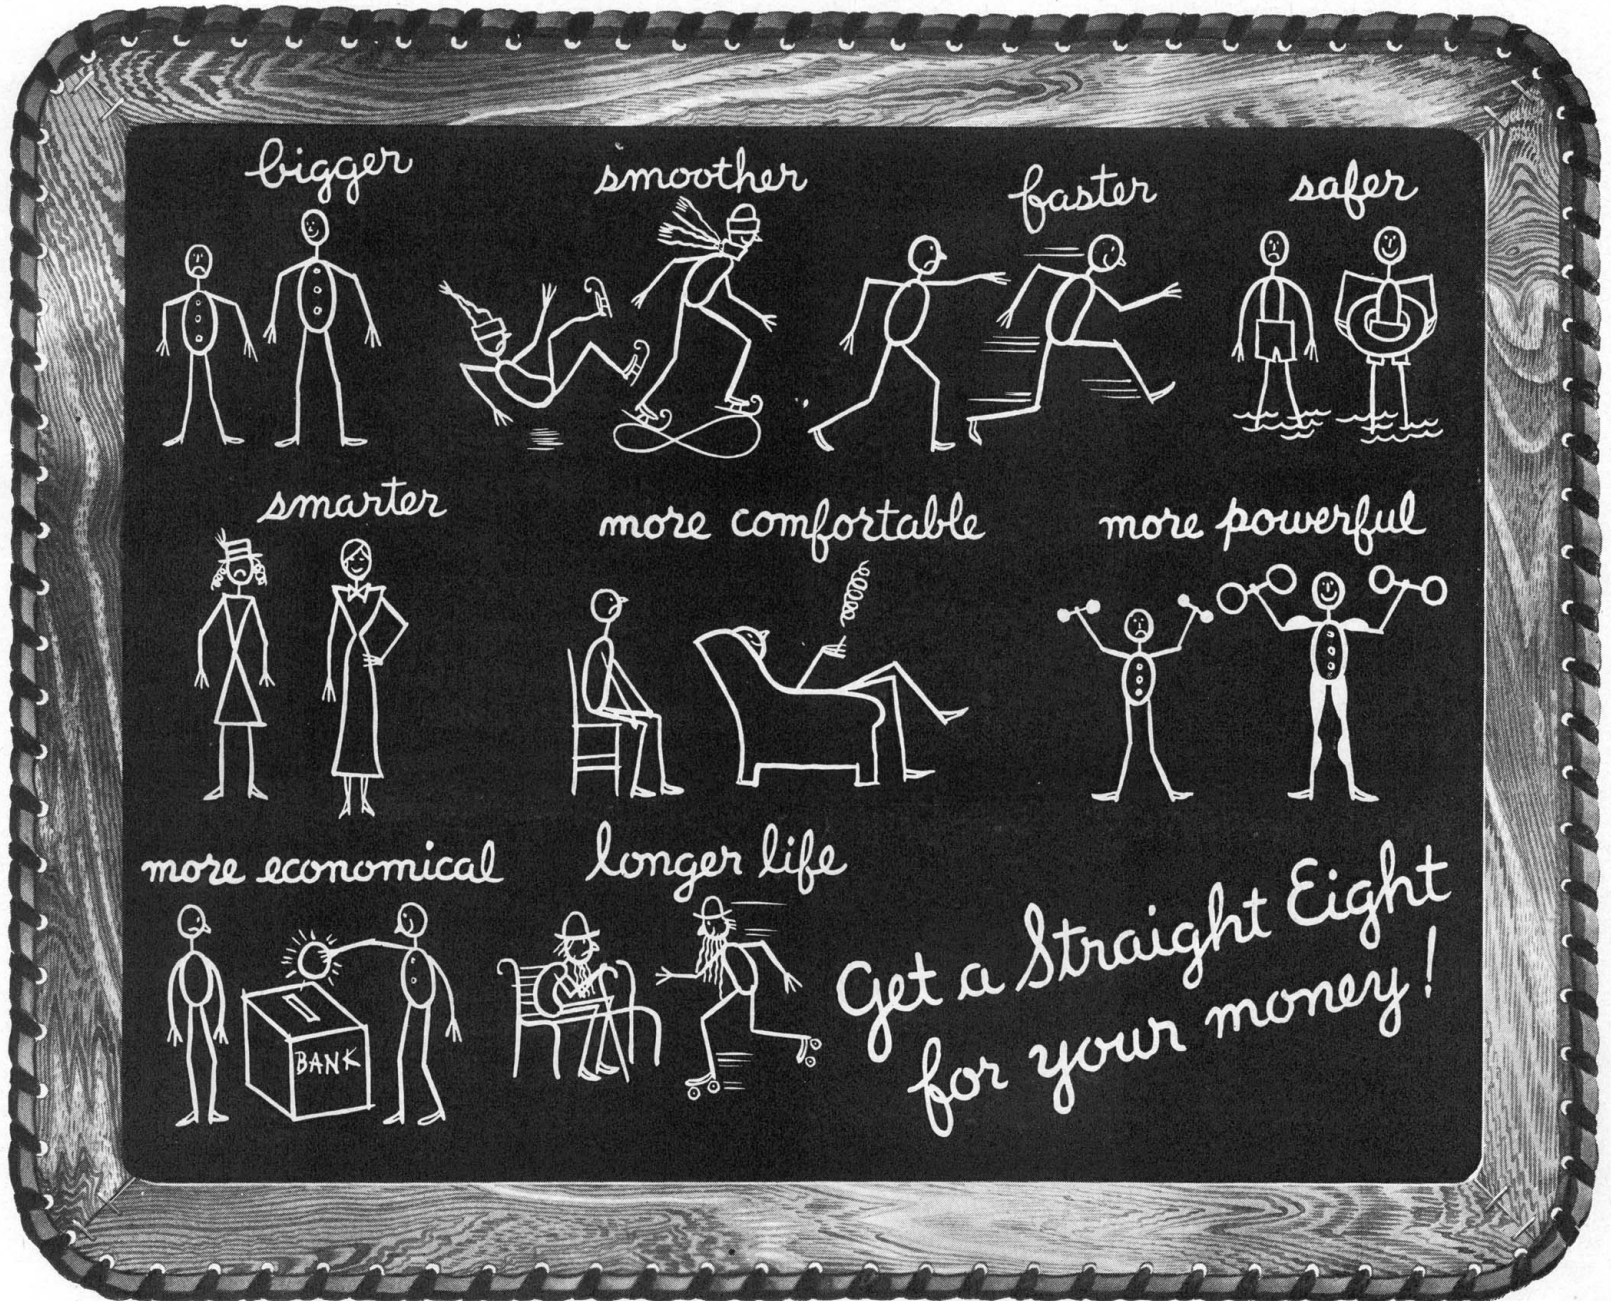 bigger
smoother
faster
safer
smarter
more comfortable
more powerful
more economical
longer life
BANK
Get a Straight Eight
for your money!